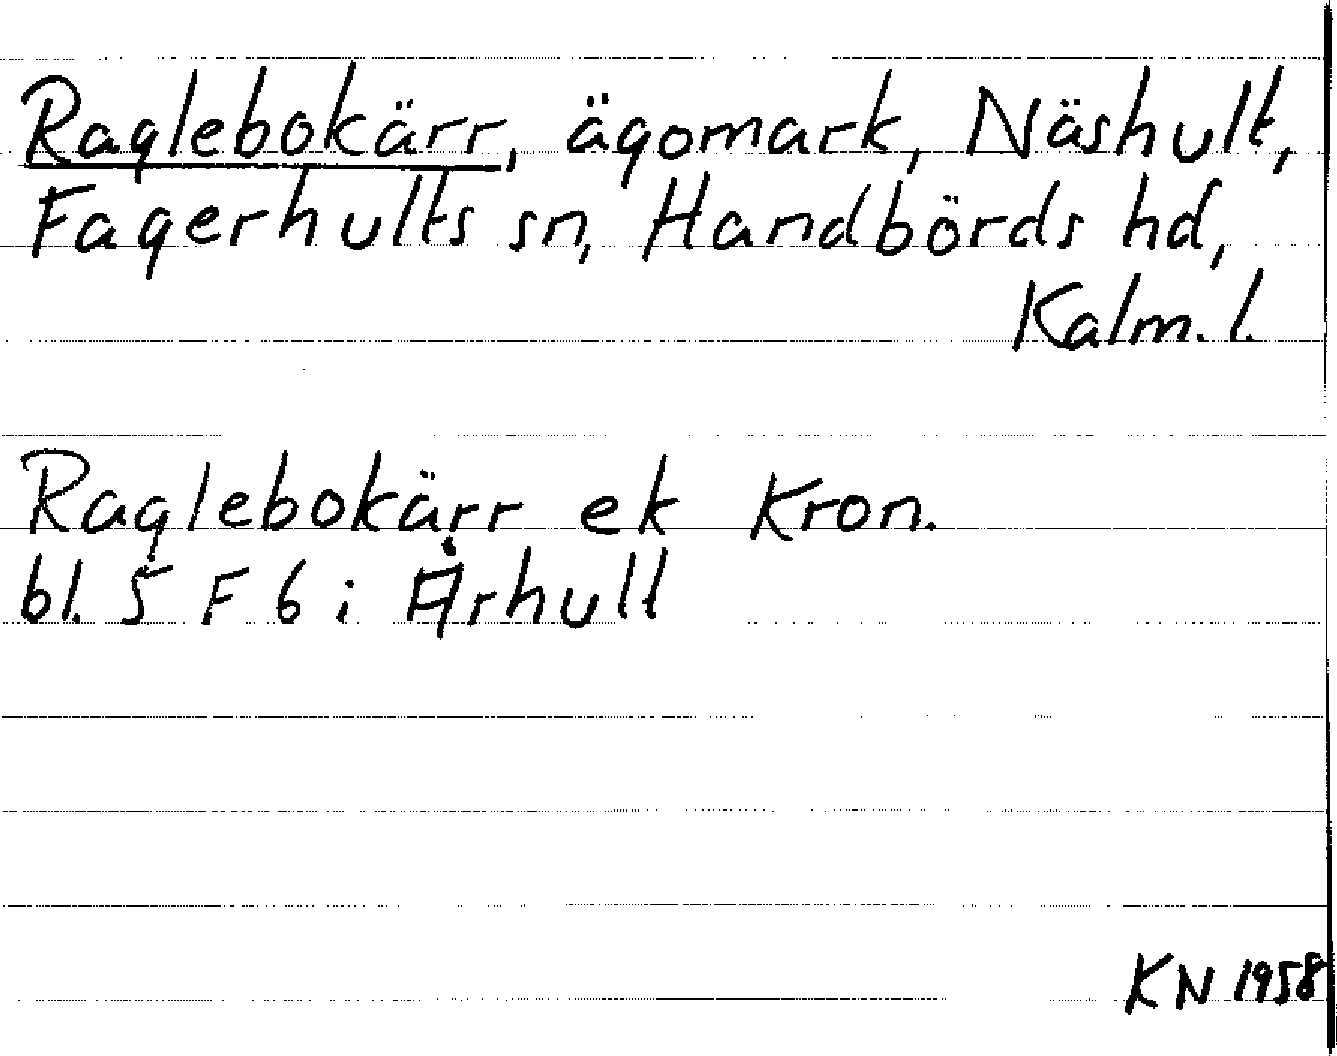 Raglebokärr, ägomark, Näshult,
Fagerhults sn, Handbörds hd,
Kalm. l.
Raglebokärr ek Kron.
bl. 5 F 6 i Århult
KN 1958